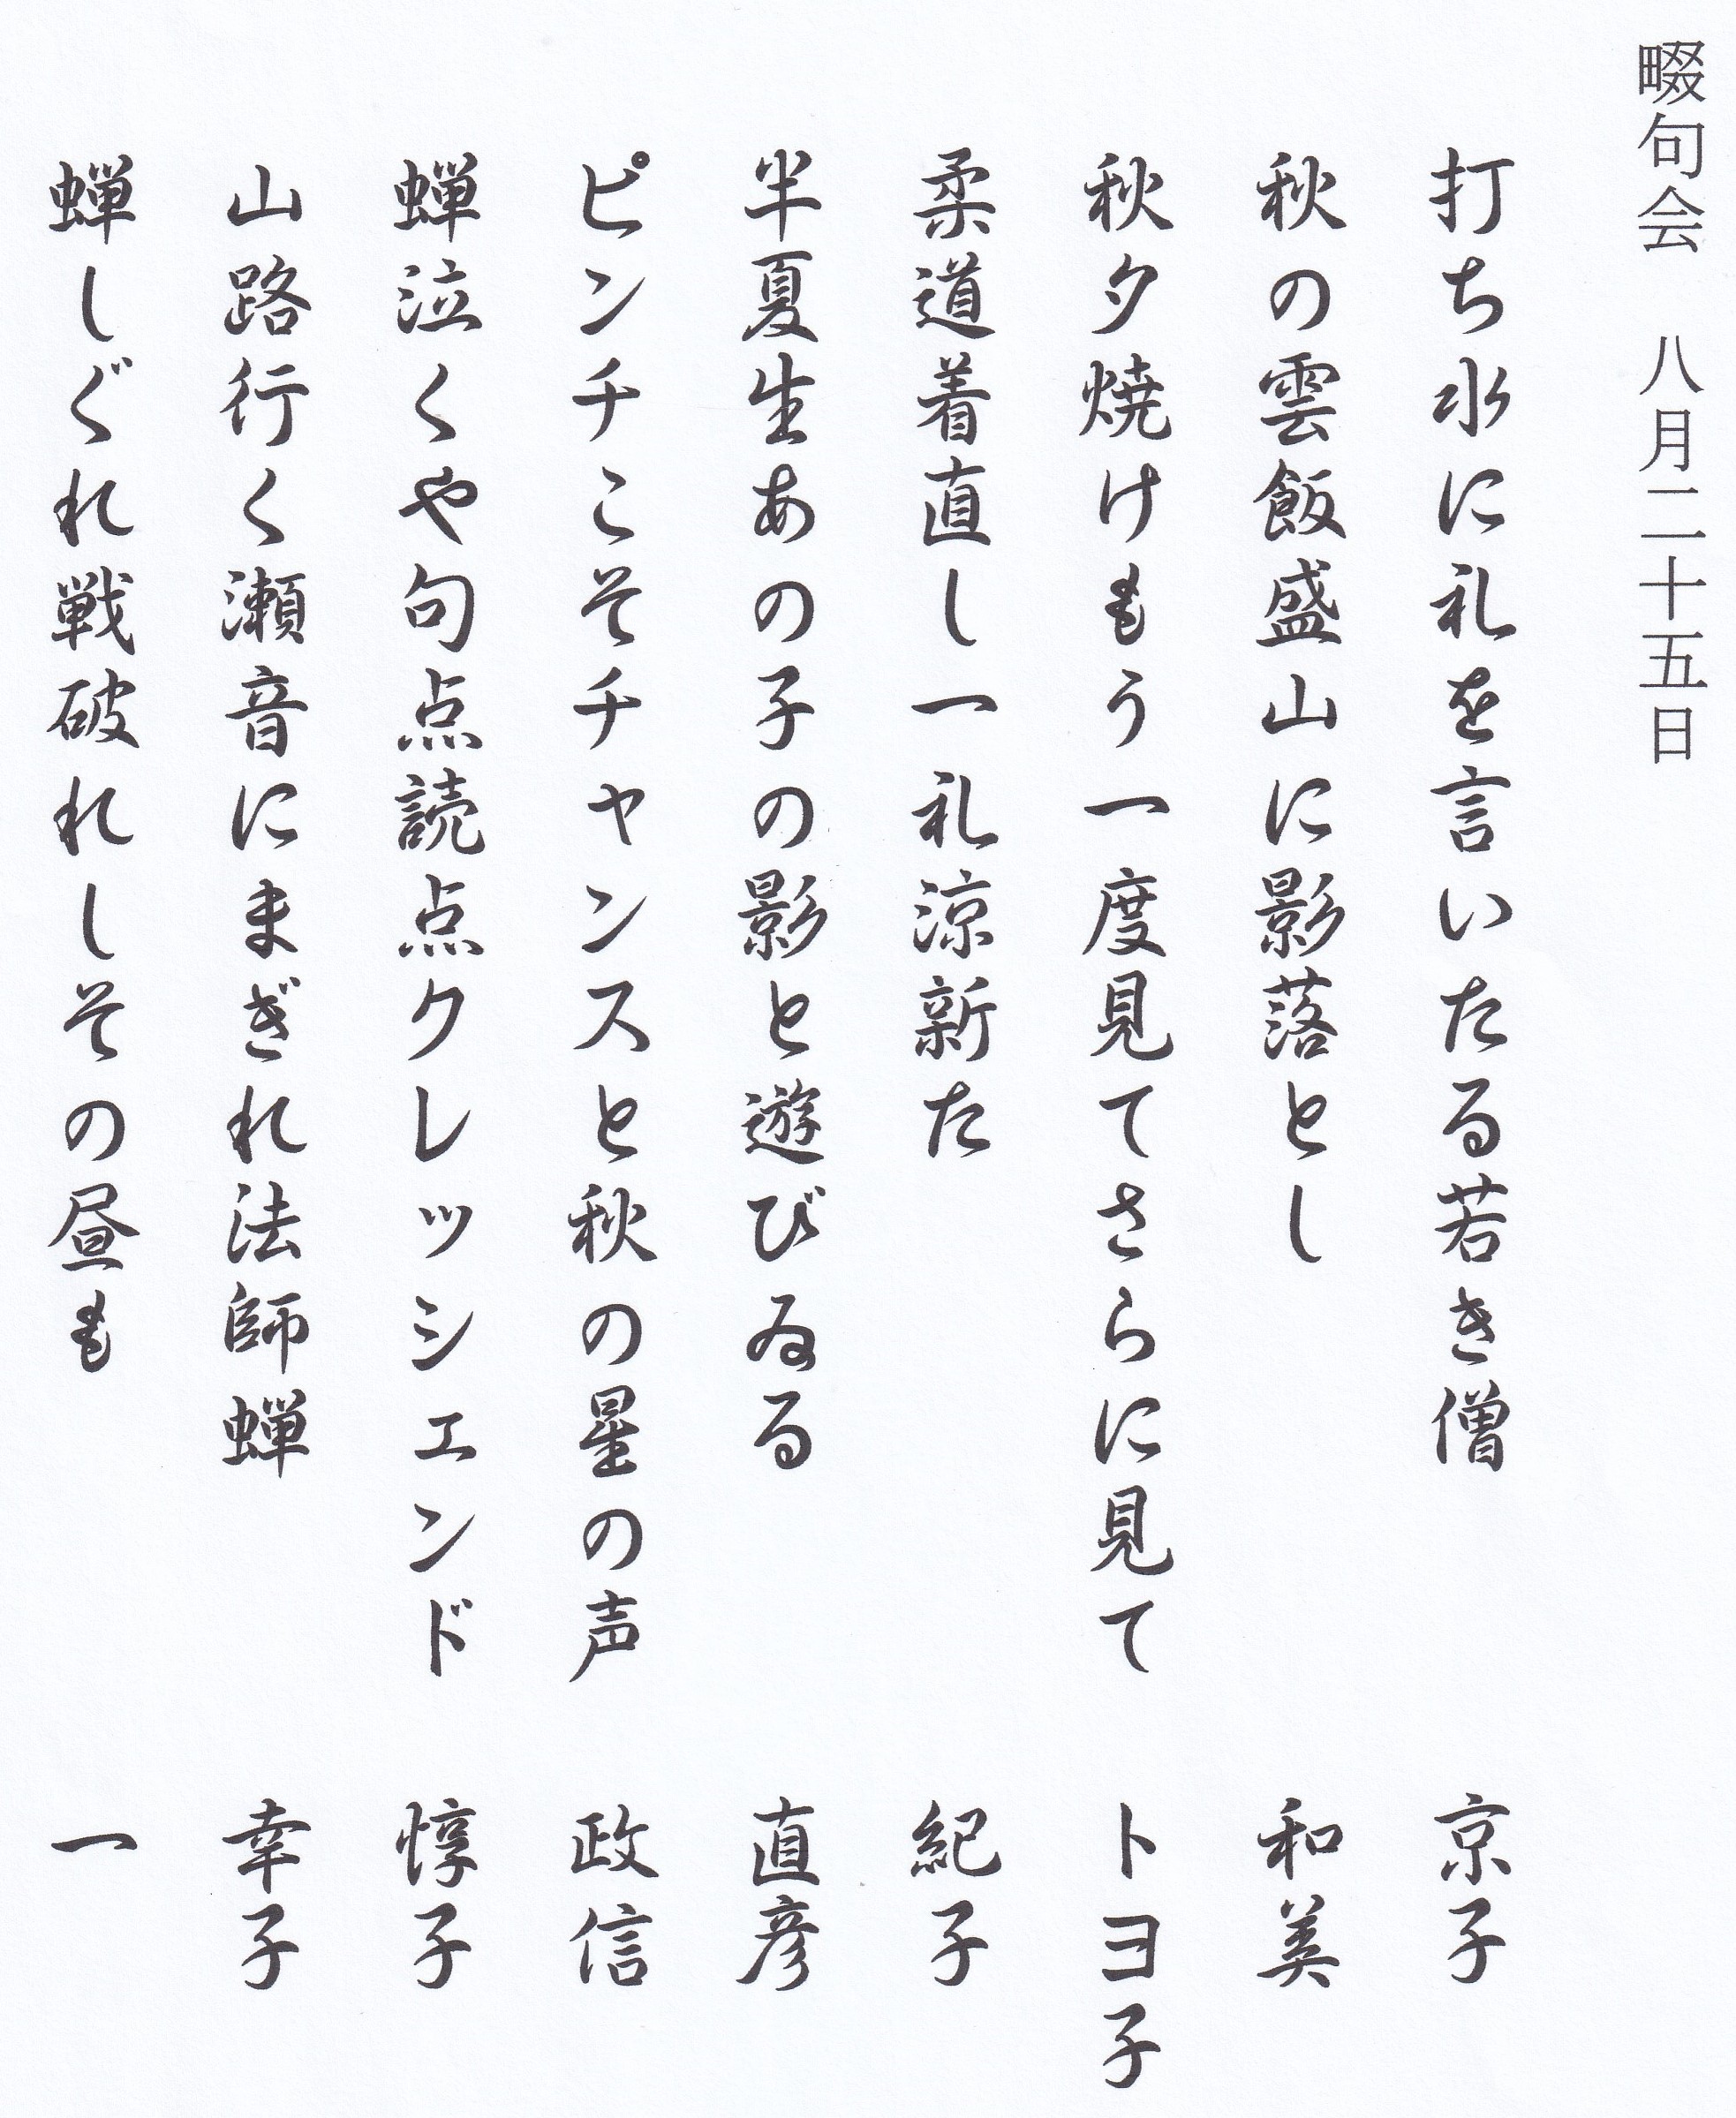 畷句会　八月二十五日
打ち水に礼を言いたる若き僧　京子
秋の雲飯盛山に影落とし　和美
秋夕焼けもう一度見てさらに見て　トヨ子
柔道着直し一礼涼新た　紀子
半夏生あの子の影と遊びゐる　直彦
ピンチこそチャンスと秋の星の声　政信
蝉泣くや句点読点クレッシェンド　惇子
山路行く瀬音にまぎれ法師蝉　幸子
蝉しぐれ戦破れしその昼も　一